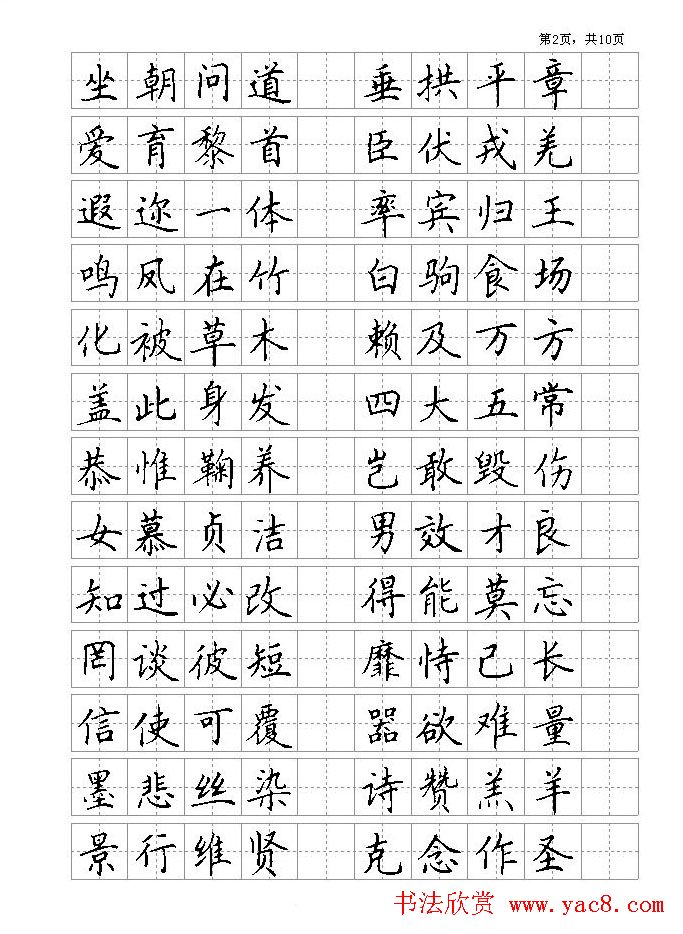 第2页，共10页
坐朝问道 垂拱平章
爱育黎首 臣伏戎羌
遐迩一体 率宾归王
鸣凤在竹 白驹食场
化被草木 赖及万方
盖此身发 四大五常
恭惟鞠养 岂敢毁伤
女慕贞洁 男效才良
知过必改 得能莫忘
罔谈彼短 靡恃己长
信使可覆 器欲难量
墨悲丝染 诗赞羔羊
景行维贤 克念作圣
书法欣赏 www.yac8.com